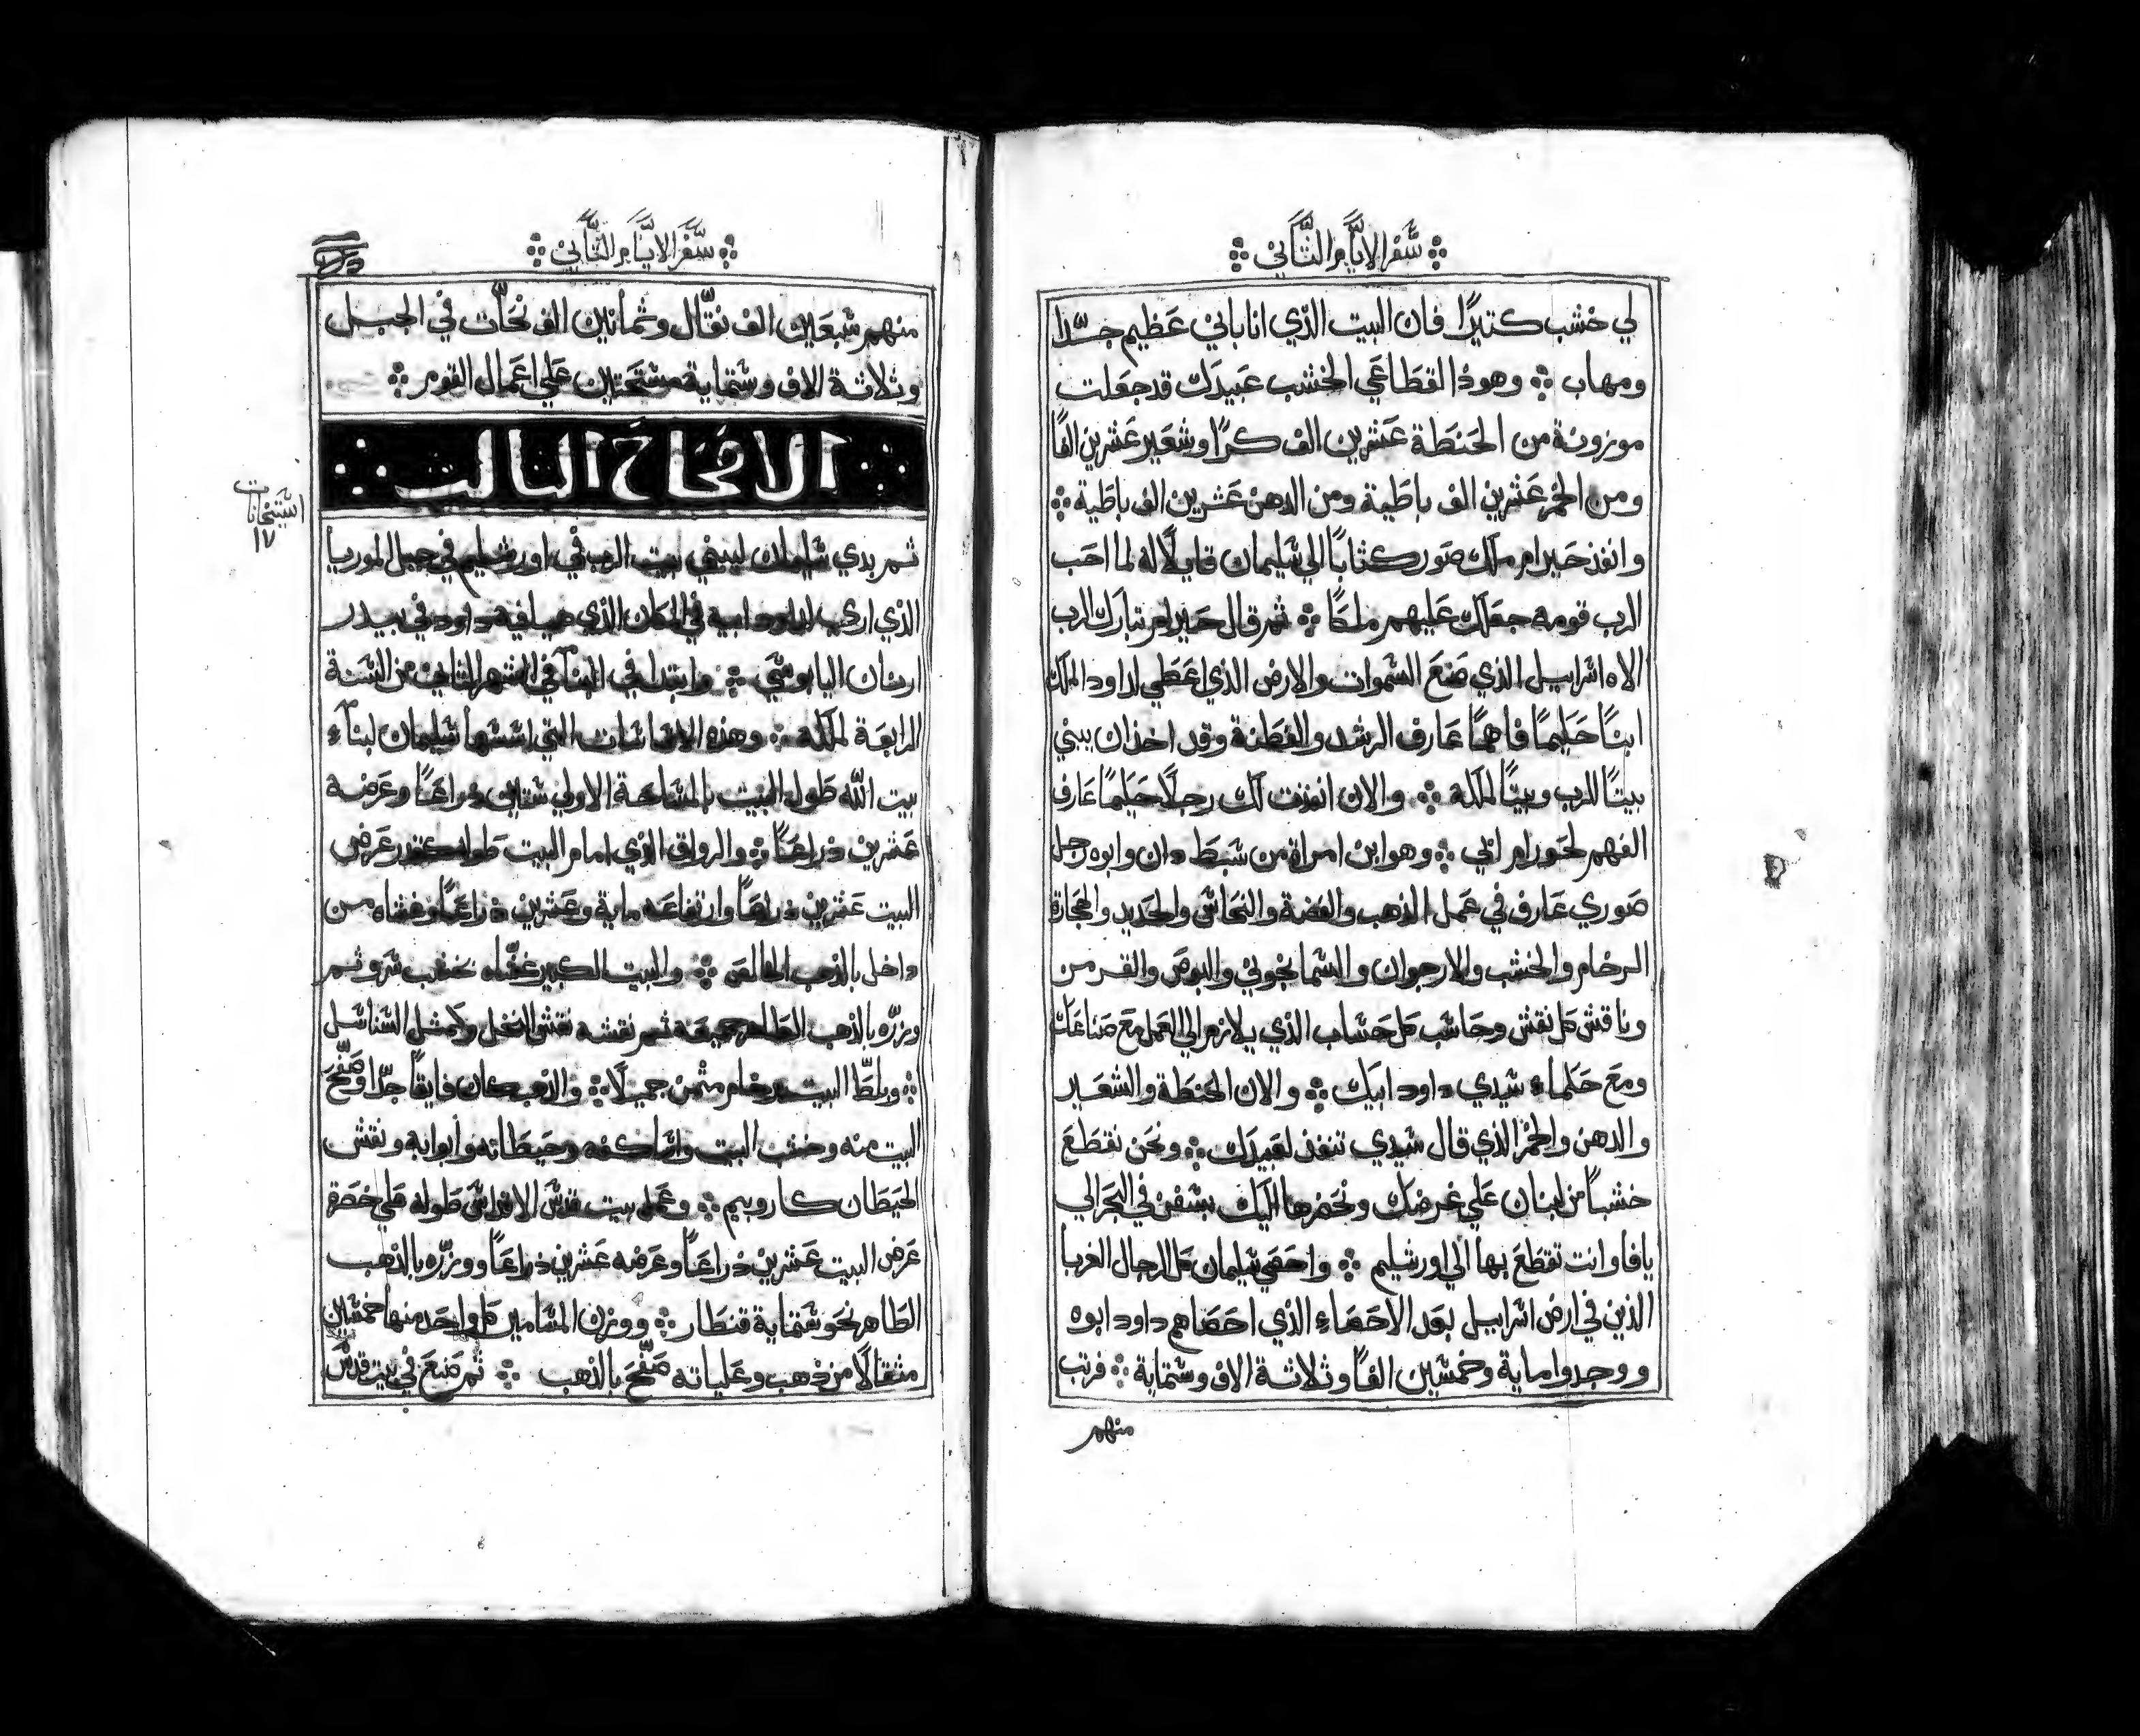 سفر الايام التاني
لي خشب كتيرًا فان البيت الذي انا باني عظيم جدًا
ومهاب وهوذا لقطاعي الخشب عبيدك قد جعلت
موزونة من الحنطة عشرين الف كرًا وشعير عشرين الفًا
ومن الخمر عشرين الف باطية ومن الدهن عشرين الف باطية
وانفذ حيرام ملك صور كتابًا الي سليمان قايلًا له لما احب
الرب قومه جعلك عليهم ملكًا ثم قال حيرام تبارك الرب
الاه اسراييل الذي صنع السموات والارض الذي اعطي لداود الملك
ابنًا حكيمًا فاهمًا عارف الرشد والفطنة وقد اخذ ان يبني
بيتًا للرب وبيتًا لملكه والان انفذت لك رجلًا حكيمًا عارف
الفهم لحورام ابي وهو ابن امراة من سبط دان وابوه رجل
صوري عارف في عمل الذهب والفضة والنحاس والحديد والحجارة
الرخام والخشب والارجوان والسمانجوني والبوص والقرمن
وناقش كل نقش وحاسب كل حساب الذي يلازم الي العمل مع صناعك
ومع حكماء سيدي داود ابيك والان الحنطة والشعير
والدهن والخمر الذي قال سيدي تنفذ لعبيدك ونحن نقطع
خشبًا من لبنان علي غرضك ونحضرها اليك بسفن في البحر الي
يافا وانت تقطع بها الي اورشليم واحصي سليمان كل الرجال الغربا
الذين في ارض اسراييل بعد الاحصاء الذي احصاهم داود ابوه
ووجدوا ماية وخمسين الفًا وثلاثة الاف وستماية فرتب
منهم
سفر الايام التاني
منهم سبعين الف نقّال وثمانين الف نحّات في الجبل
وثلاثة الاف وستماية مستحتين علي اعمال القوم
الافتحاح التالت
استنحانات
١٧
ثم بدي سليمان ليبني بيت الرب في اورشليم في جبل الموريا
الذي اري لداود ابيه في المكان الذي هيا فيه داود في بيدر
ارنان اليابوسي وابتدا في البنآ في الشهر الثاني من السنة
الرابعة لملكه وهذه الاساسات التي اسسها سليمان لبنآء
بيت الله طول البيت بالمساحة الاولي ستين ذراعًا وعرضه
عشرين ذراعًا والرواق الذي امام البيت طوله بقدر عرض
البيت عشرين ذراعًا وارتفاعه ماية وعشرين ذراعًا وغشاه من
داخل بالذهب الخالص والبيت الكبير غشّاه خشب سرو ثم
وزرّه بالذهب الطاهر جميعه ثم نقشه نقش النخل وكمثل السناسل
وبلّط البيت برخام مثمن جميلًا والذهب كان فايقًا جدًا وصفّح
البيت منه وخشب البيت واساكفه وحيطانه وأبوابه ونقش
الحيطان كاروبيم وعمل بيت قدس الاقداس طوله علي خصرة
عرض البيت عشرين ذراعًا وعرضه عشرين ذراعًا ووزرّه بالذهب
الطاهر نحو ستماية قنطار ووزن المسامين كل واحد منها خمسين
مثقالًا من ذهب وعلياته صفّح بالذهب ثم صنع في بيت قدس